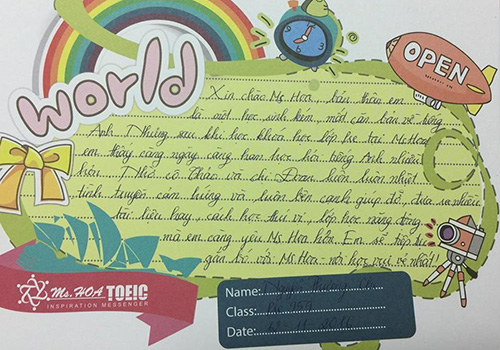 world
OPEN
Xin chào Ms Hoa, bản thân em
là một học sinh kém, mất căn bản về tiếng
Anh. Nhưng sau khi học khóa học lớp Pre tại Ms Hoa
em thấy càng ngày càng ham học hỏi tiếng Anh nhiều
hơn. Nhờ cô Thảo và chị Đoan luôn luôn nhiệt
tình truyền cảm hứng và luôn bên cạnh giúp đỡ, đưa ra nhiều
tài liệu hay, cách học thú vị, lớp học năng động
mà em càng yêu Ms Hoa hơn. Em sẽ tiếp tục
gắn bó với Ms Hoa - nơi học vui vẻ nhất!
Ms. HOA TOEIC
INSPIRATION MESSENGER
Name:
Class: Pre 959
Date: